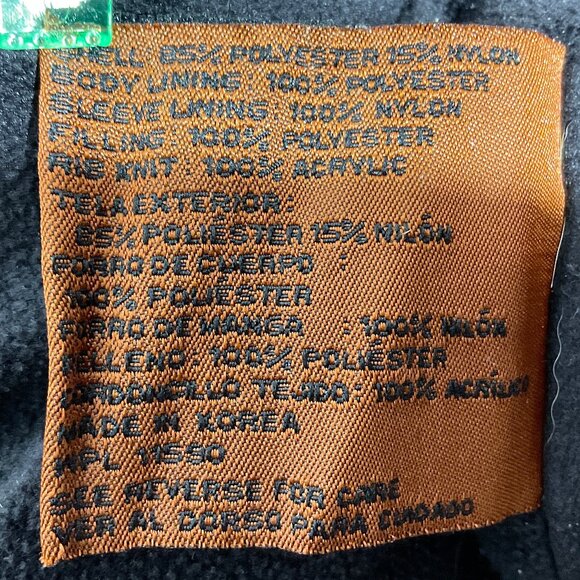 SHELL : 85% POLYESTER 15% NYLON
BODY LINING : 100% POLYESTER
SLEEVE LINING : 100% NYLON
FILLING : 100% POLYESTER
RIB KNIT : 100% ACRYLIC
TELA EXTERIOR :
85% POLIESTER 15% NILÓN
FORRO DE CUERPO :
100% POLIESTER
FORRO DE MANGA : 100% NILÓN
RELLENO : 100% POLIÉSTER
CORDONCILLO TEJIDO : 100% ACRÍLICO
MADE IN KOREA
WPL 11590
SEE REVERSE FOR CARE
VER AL DORSO PARA CUIDADO